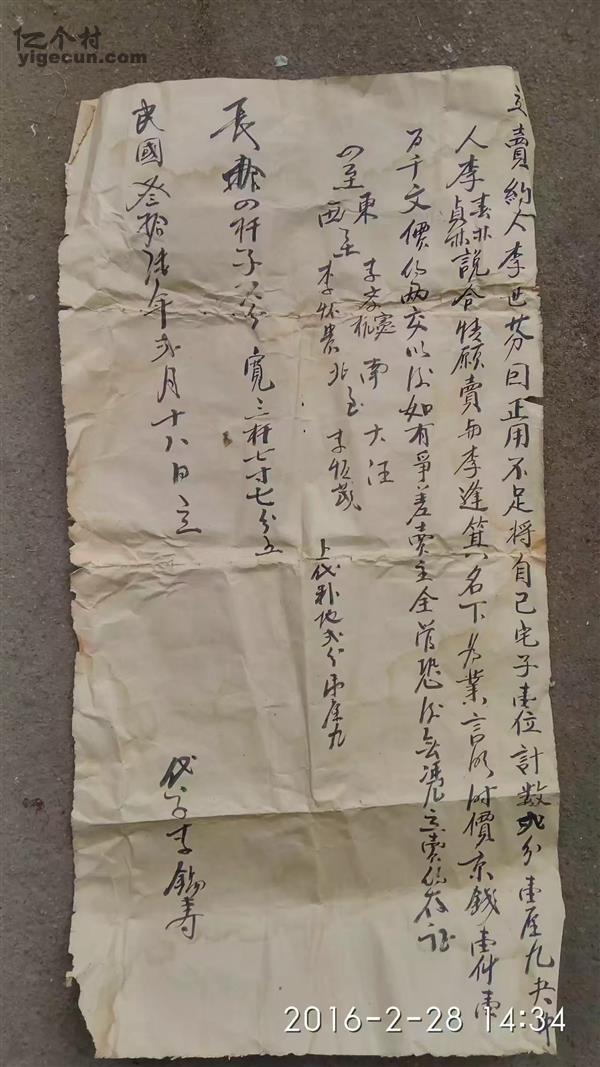 亿个村
yigecun.com
立賣約人李世芬因正用不足将自己宅子壹位計数弍分壹厘九央中
人李春林
李貞林說合情願賣与李逢箕名下为業言明时價京錢壹仟壹
百千文價約兩交以後如有爭差賣主全管恐後無憑立賣約存証
四至東李彦憲 南大汪
西至李怀農北至李恒茂
上代粮地弍分厘九
長 四杆子 分寬三杆七寸七分五
民國叁拾陸年弍月十八日立
代字李錫壽
2016-2-28 14:34